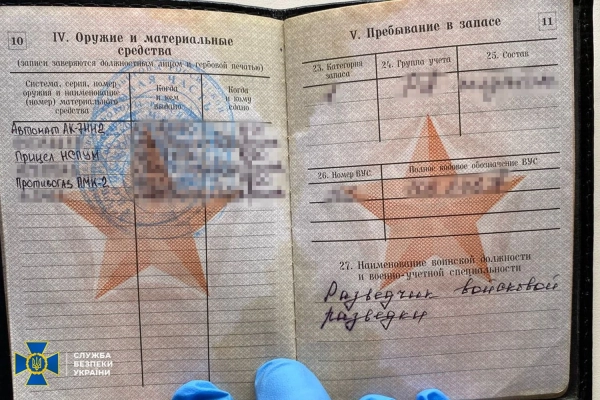 10
IV. Оружие и материальные
средства
(записи заверяются должностным лицом и гербовой печатью)
Система, серия, номер
оружия и наименование
(номер) материального
средства
Когда
и кем
выдано
Когда
и кому
сдано
Автомат АК-74М
Прицел НСПУМ
Противогаз ПМК-2
V. Пребывание в запасе
11
23. Категория
запаса
24. Группа учета
25. Состав
26. Номер ВУС
Полное кодовое обозначение ВУС
27. Наименование воинской должности
и военно-учетной специальности
Разведчик войсковой
разведки
СЛУЖБА
БЕЗПЕКИ
УКРАЇНИ